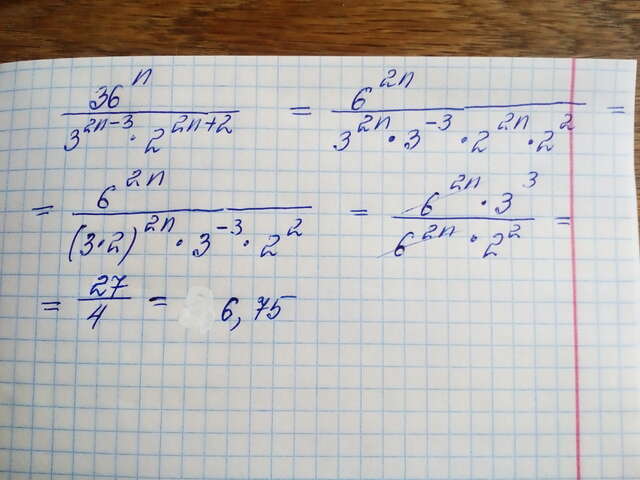 36^n / (3^(2n-3) · 2^(2n+2)) = 6^(2n) / (3^(2n) · 3^(-3) · 2^(2n) · 2^2) =
= 6^(2n) / ((3·2)^(2n) · 3^(-3) · 2^2) = (6^(2n) · 3^3) / (6^(2n) · 2^2) =
= 27/4 = 6,75